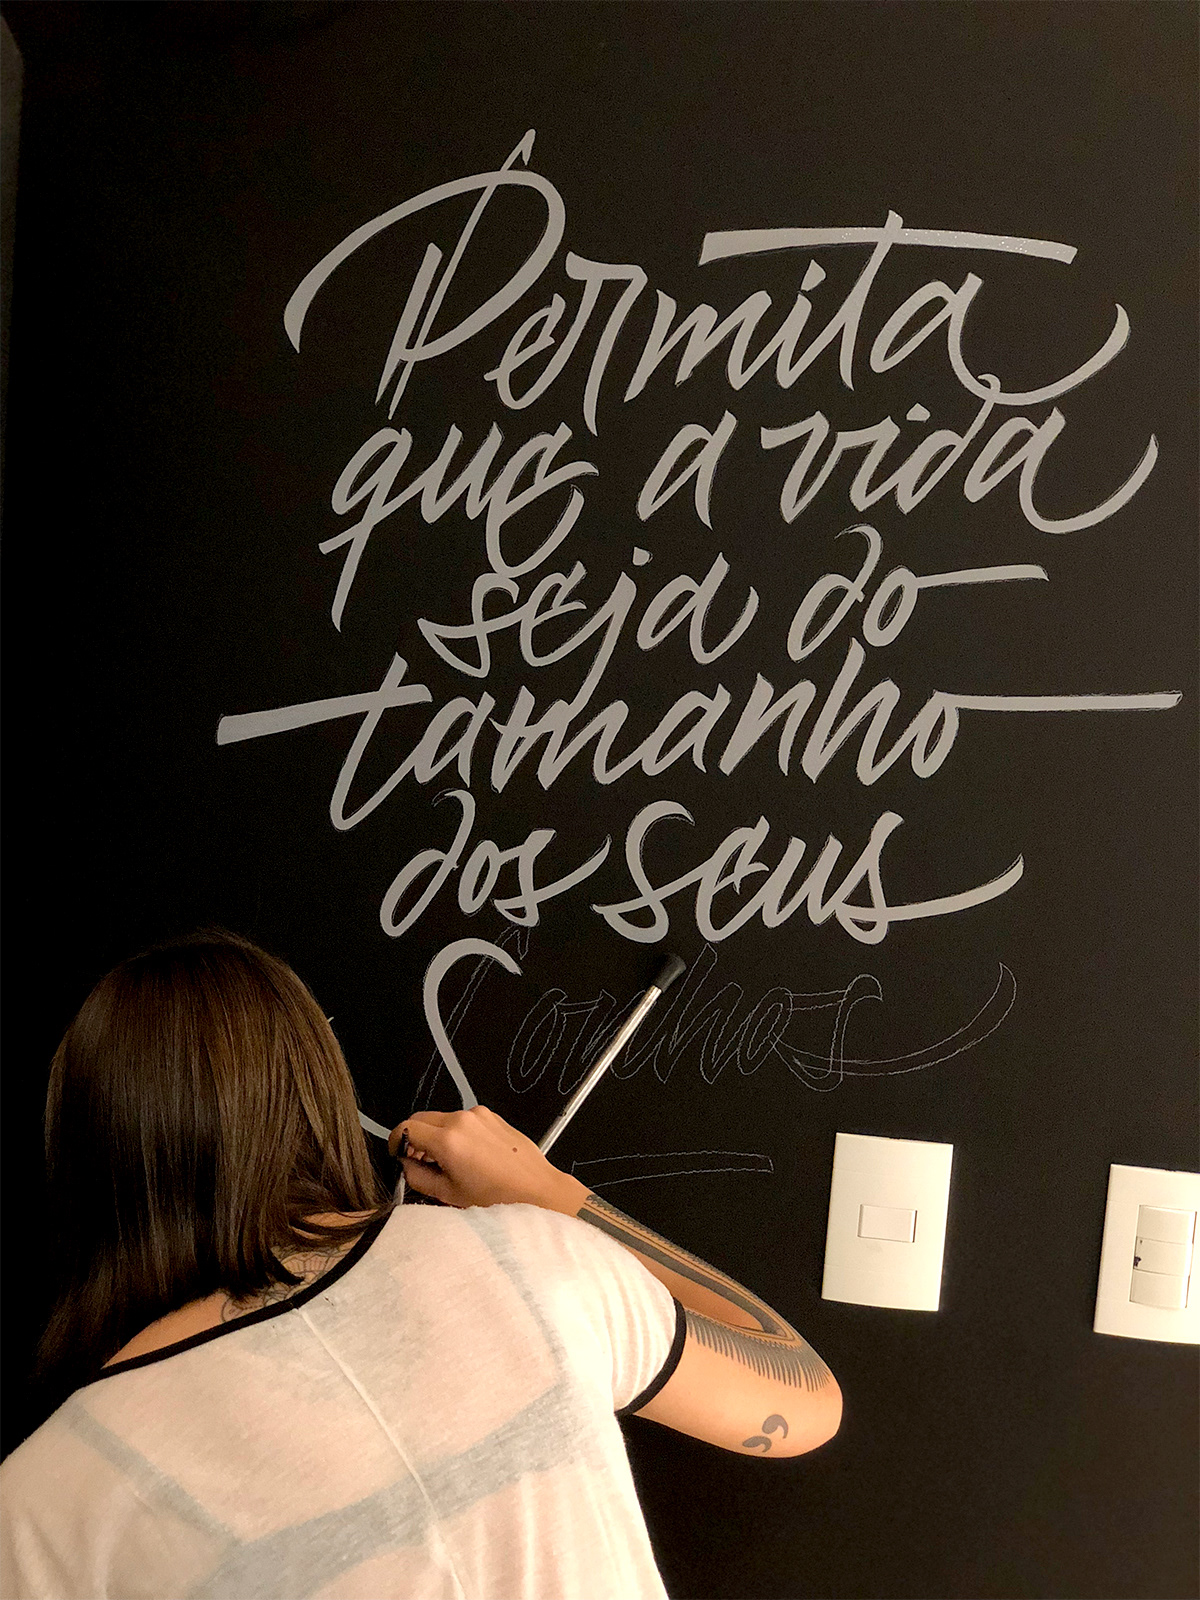 Permita
que a vida
seja do
tamanho
dos seus
Sonhos